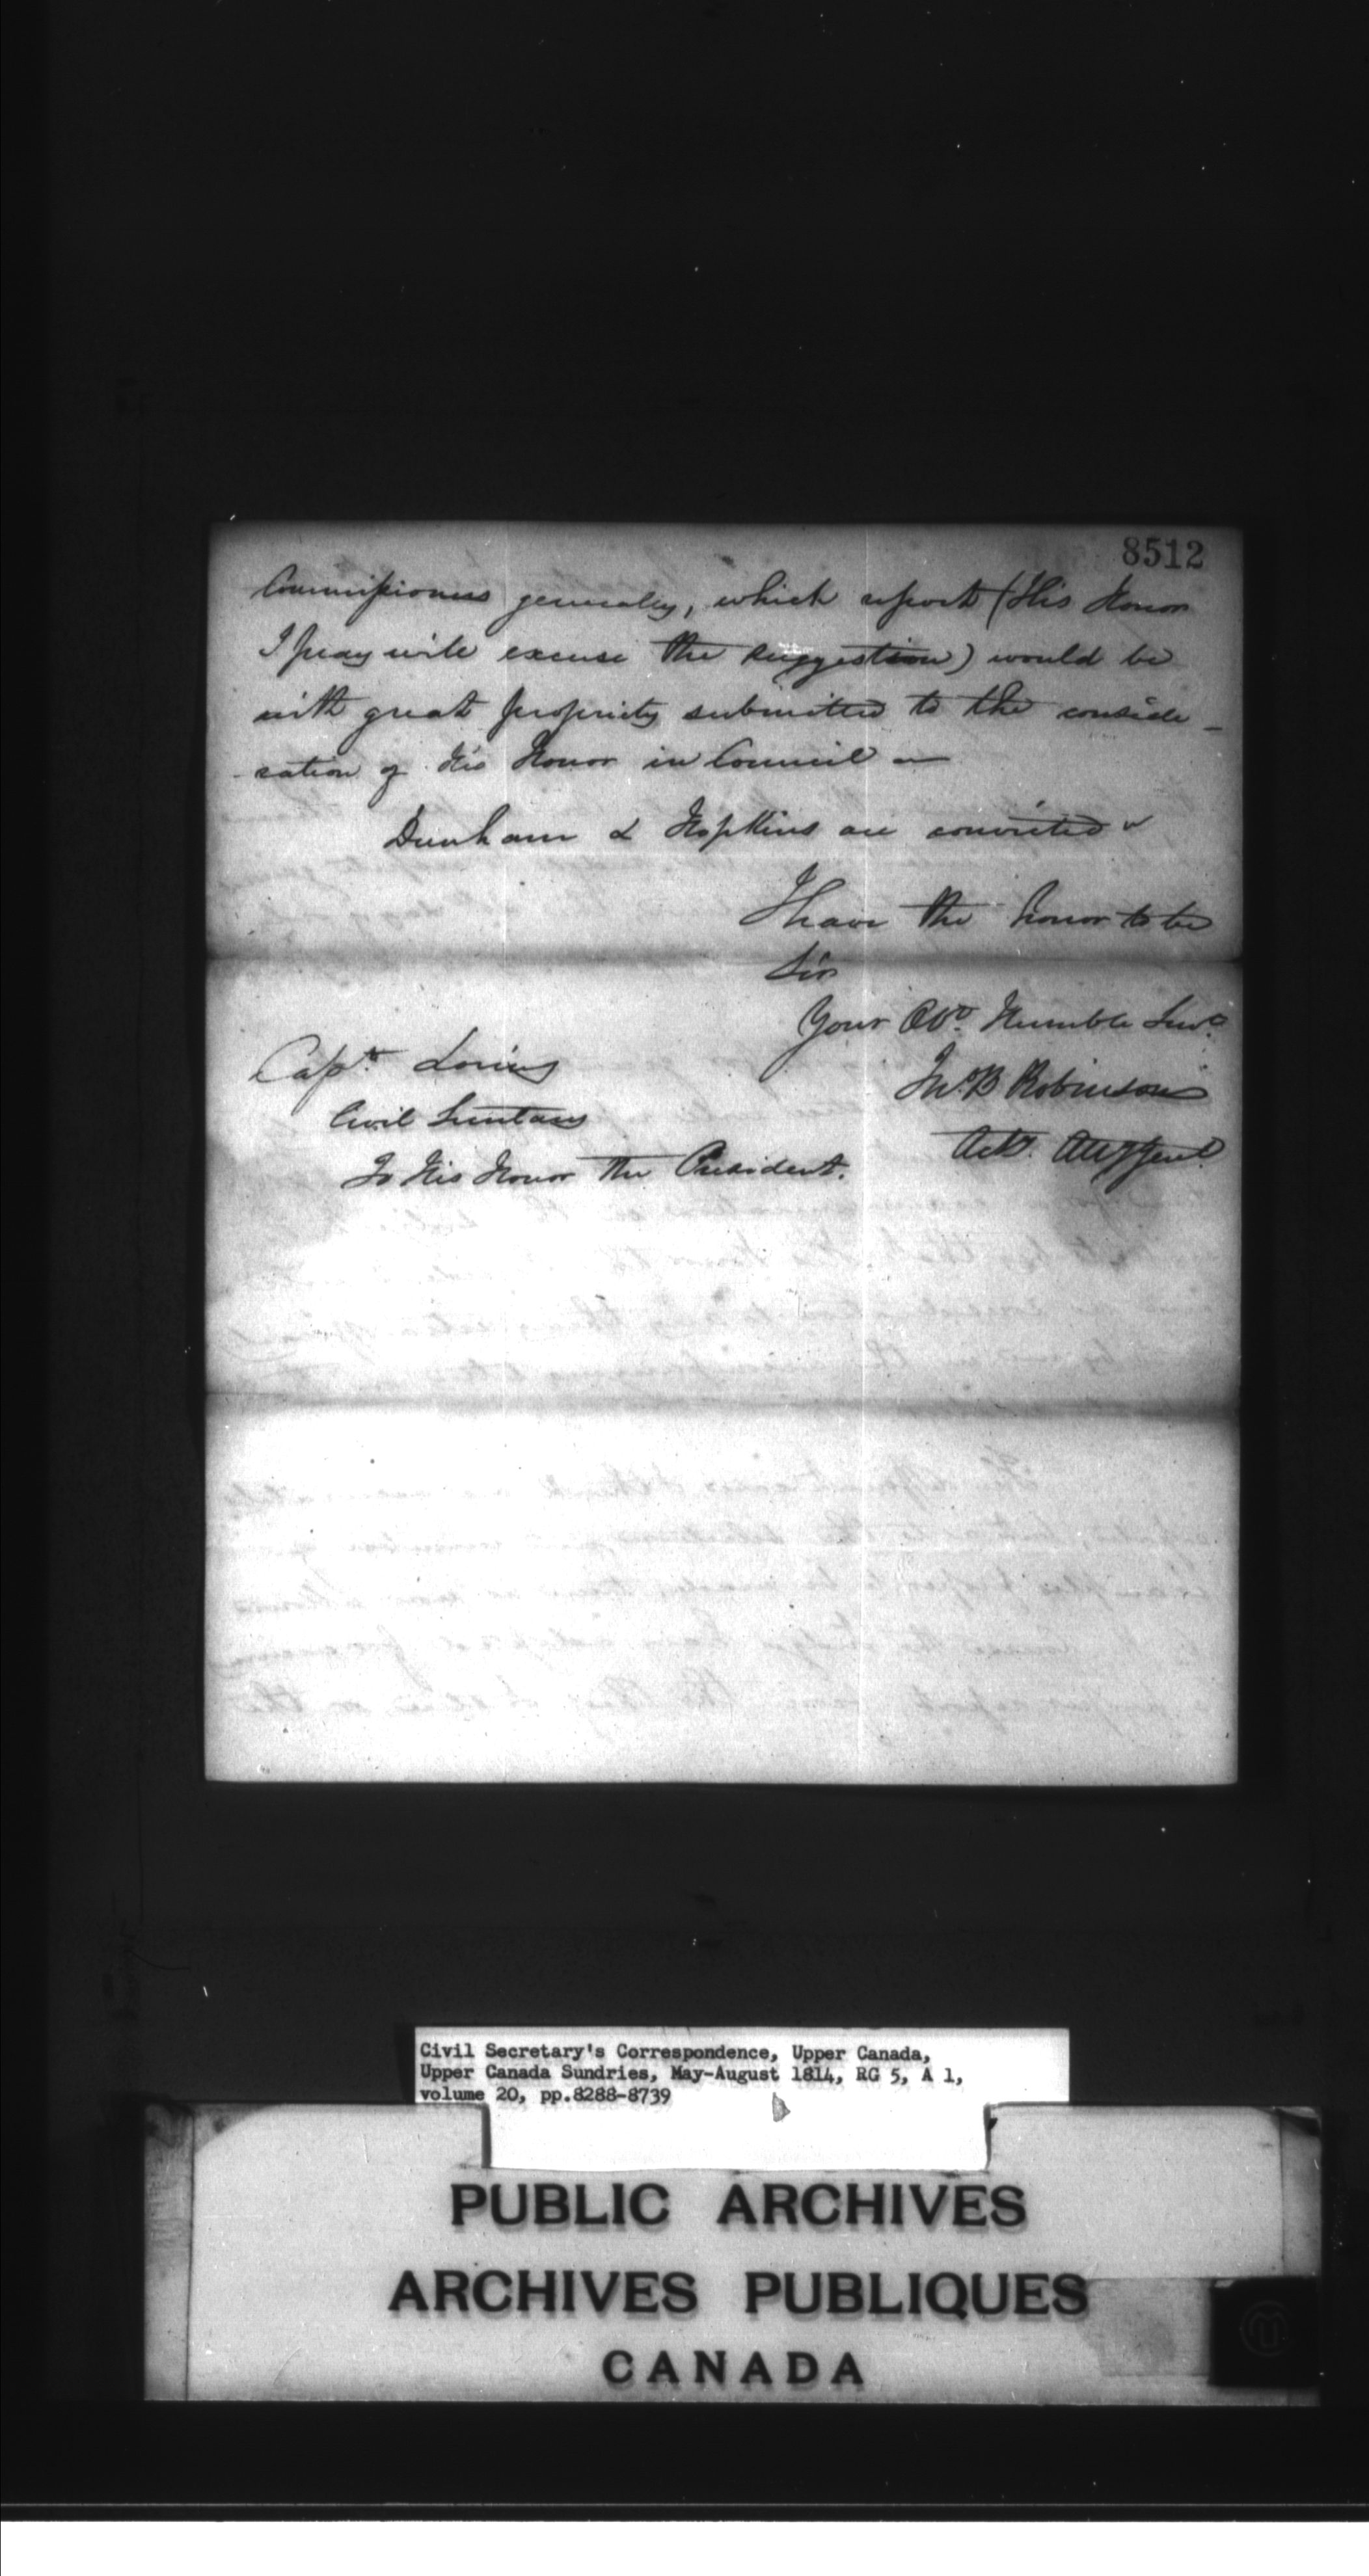 8512
Commissioners generally, which report (His Honor
I pray will excuse the suggestion) would be
with great propriety submitted to the conside-
-ration of His Honor in Council —
Dunham & Hopkins are convicted
I have the honor to be
Sir
Your Obt. Humble Servt.
Jno. B Robinson
Actg. Atty Genl.
Capt. Loring
Civil Secretary
To His Honor the President.
Civil Secretary's Correspondence, Upper Canada,
Upper Canada Sundries, May-August 1814, RG 5, A 1,
volume 20, pp.8288-8739
PUBLIC ARCHIVES
ARCHIVES PUBLIQUES
CANADA